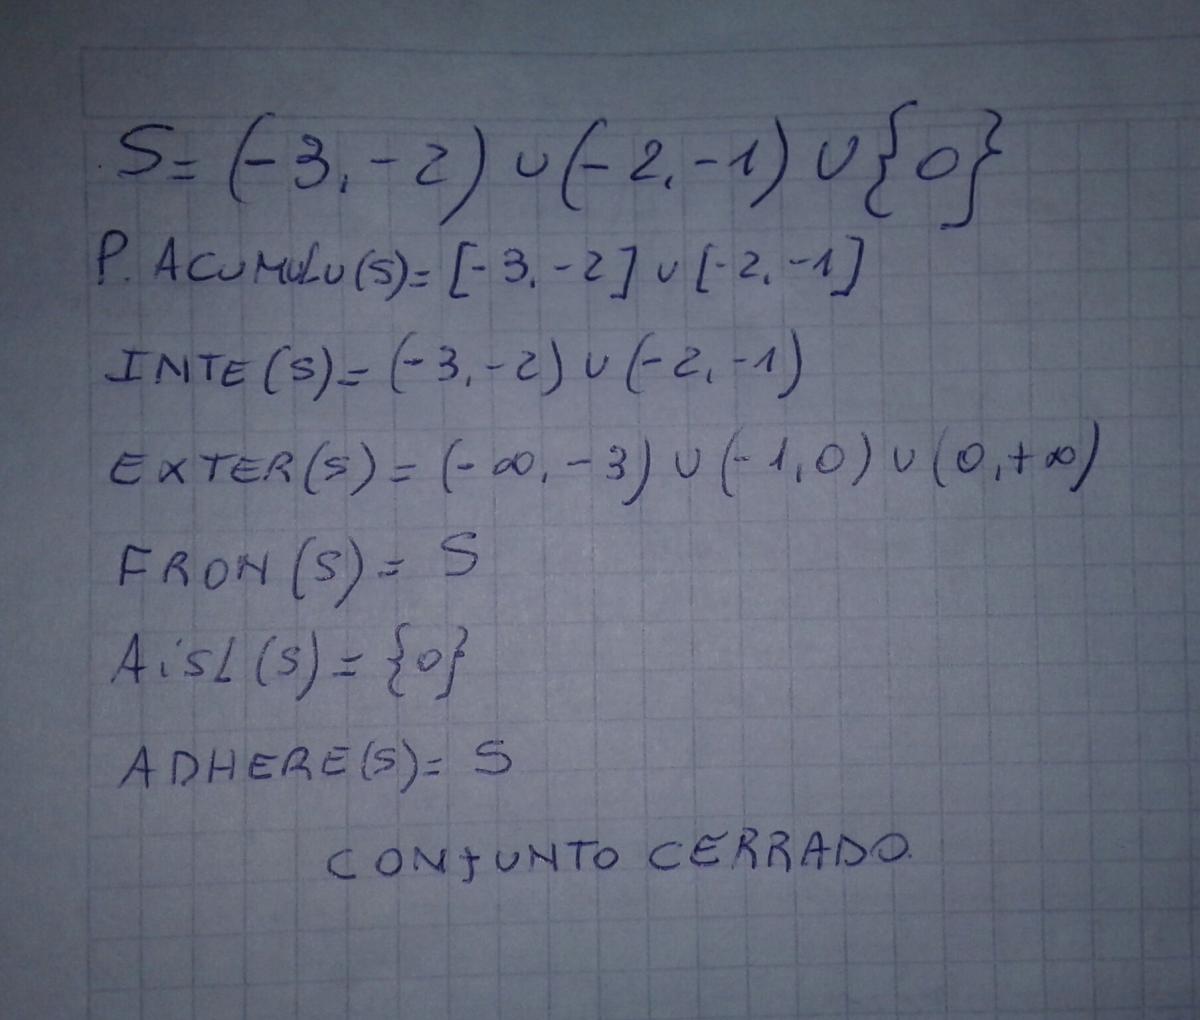 S= (-3,-2) ∪ (-2,-1) ∪ {0}
P. ACUMULU(S)= [-3,-2] ∪ [-2,-1]
INTE(S)= (-3,-2) ∪ (-2,-1)
EXTER(S) = (-∞,-3) ∪ (-1,0) ∪ (0,+∞)
FRON(S)= S
AiSL(S)= {0}
ADHERE(S)= S
CONJUNTO CERRADO.